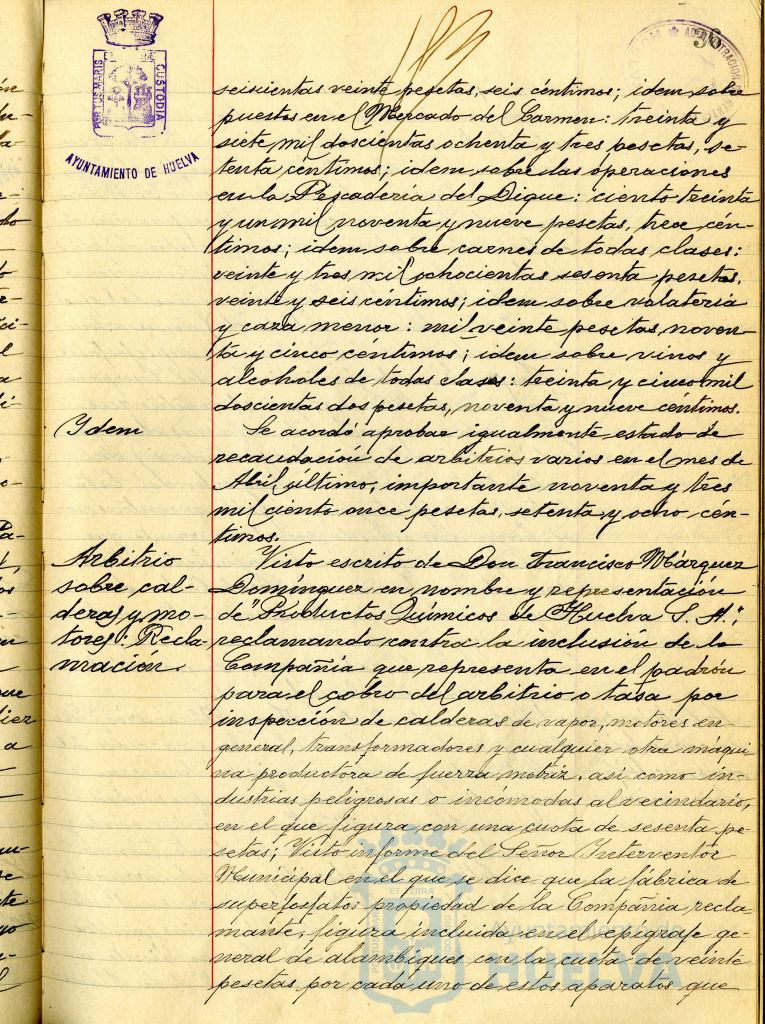 36
PORTUS MARIS
CUSTODIA
AYUNTAMIENTO DE HUELVA
ADMINISTRACION
seiscientas veinte pesetas, seis céntimos; idem sobre
puestos en el Mercado del Carmen: treinta y
siete mil doscientas ochenta y tres pesetas, se-
tenta céntimos; idem sobre las operaciones
en la Pescadería del Dique: ciento treinta
y un mil noventa y nueve pesetas, trece cén-
timos; idem sobre carnes de todas clases:
veinte y tres mil ochocientas sesenta pesetas,
veinte y seis céntimos; idem sobre volatería
y caza menor: mil veinte pesetas, noven-
ta y cinco céntimos; idem sobre vinos y
alcoholes de todas clases: treinta y cinco mil
doscientas dos pesetas, noventa y nueve céntimos.
Ydem
Se acordó aprobar igualmente estado de
recaudación de arbitrios varios en el mes de
Abril último, importante noventa y tres
mil ciento once pesetas, setenta y ocho cén-
timos.
Arbitrio
sobre cal-
deras y mo-
tores: Recla-
mación.
Visto escrito de Don Francisco Márquez
Domínguez en nombre y representación
de "Productos Químicos de Huelva S. A.",
reclamando contra la inclusión de la
Compañía que representa en el padrón
para el cobro del arbitrio o tasa por
inspección de calderas de vapor, motores en
general, transformadores y cualquier otra máqui
na productora de fuerza motriz, asi como in-
dustrias peligrosas o incómodas al vecindario,
en el que figura con una cuota de sesenta pe-
setas; Visto informe del Señor Interventor
Municipal en el que se dice que la fábrica de
superfosfatos propiedad de la Compañía recla-
mante, figura incluida en el epígrafe ge-
neral de alambiques con la cuota de veinte
pesetas por cada uno de estos aparatos que
Ayuntamiento de
HUELVA